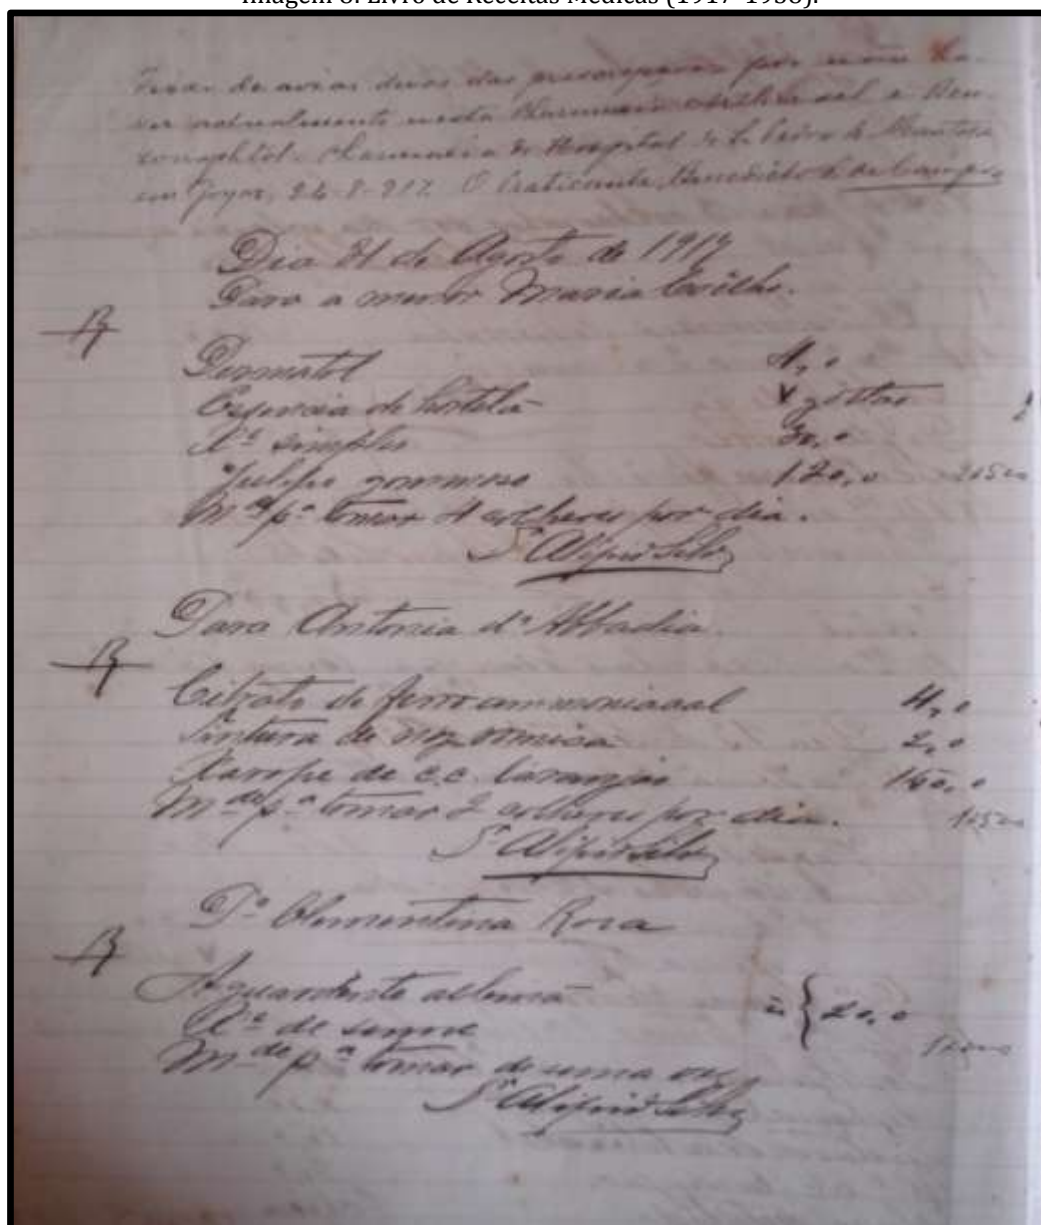 Imagem 8. Livro de Receitas Médicas (1917-1936).
de aviar duas das por não ha-
ver actualmente nesta Pharmacia e Ben-
zonaphtol. Pharmacia do Hospital de S. Pedro de Alcantara
em Goyaz, 24-8-917. O Praticante, Benedicto de Campos
Dia 31 de Agosto de 1917
Para a menor Maria Coêlho.
Dermatol 4,0
Essencia de hortelã V gottas
X.e simples 30,0
Julepo gommoso 120,0
M.de p.a tomar 4 colheres por dia.
Alipio Silva
Para Antonia d'Abbadia
Citrato de ferro ammoniacal 4,0
Tintura de noz vomica 2,0
Xarope de c.c. laranjas
M.de p.a tomar 2 colheres por dia.
Alipio Silva
P.a Clementina Rosa
Aguardente allemã
X.e de senne ã { 20,0
M.de p.a tomar de uma vez
Alipio Silva